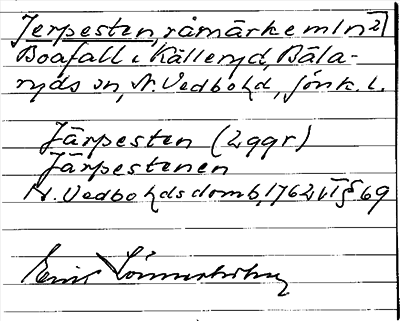 Jerpesten, råmärke mln 2)
Boafall i Källeryd, Bäla-
ryds sn, N. Vedbo hd, Jönk. l.
Järpesten (2 ggr)
Järpestenen
N. Vedbo hds domb, 1762 VT § 69